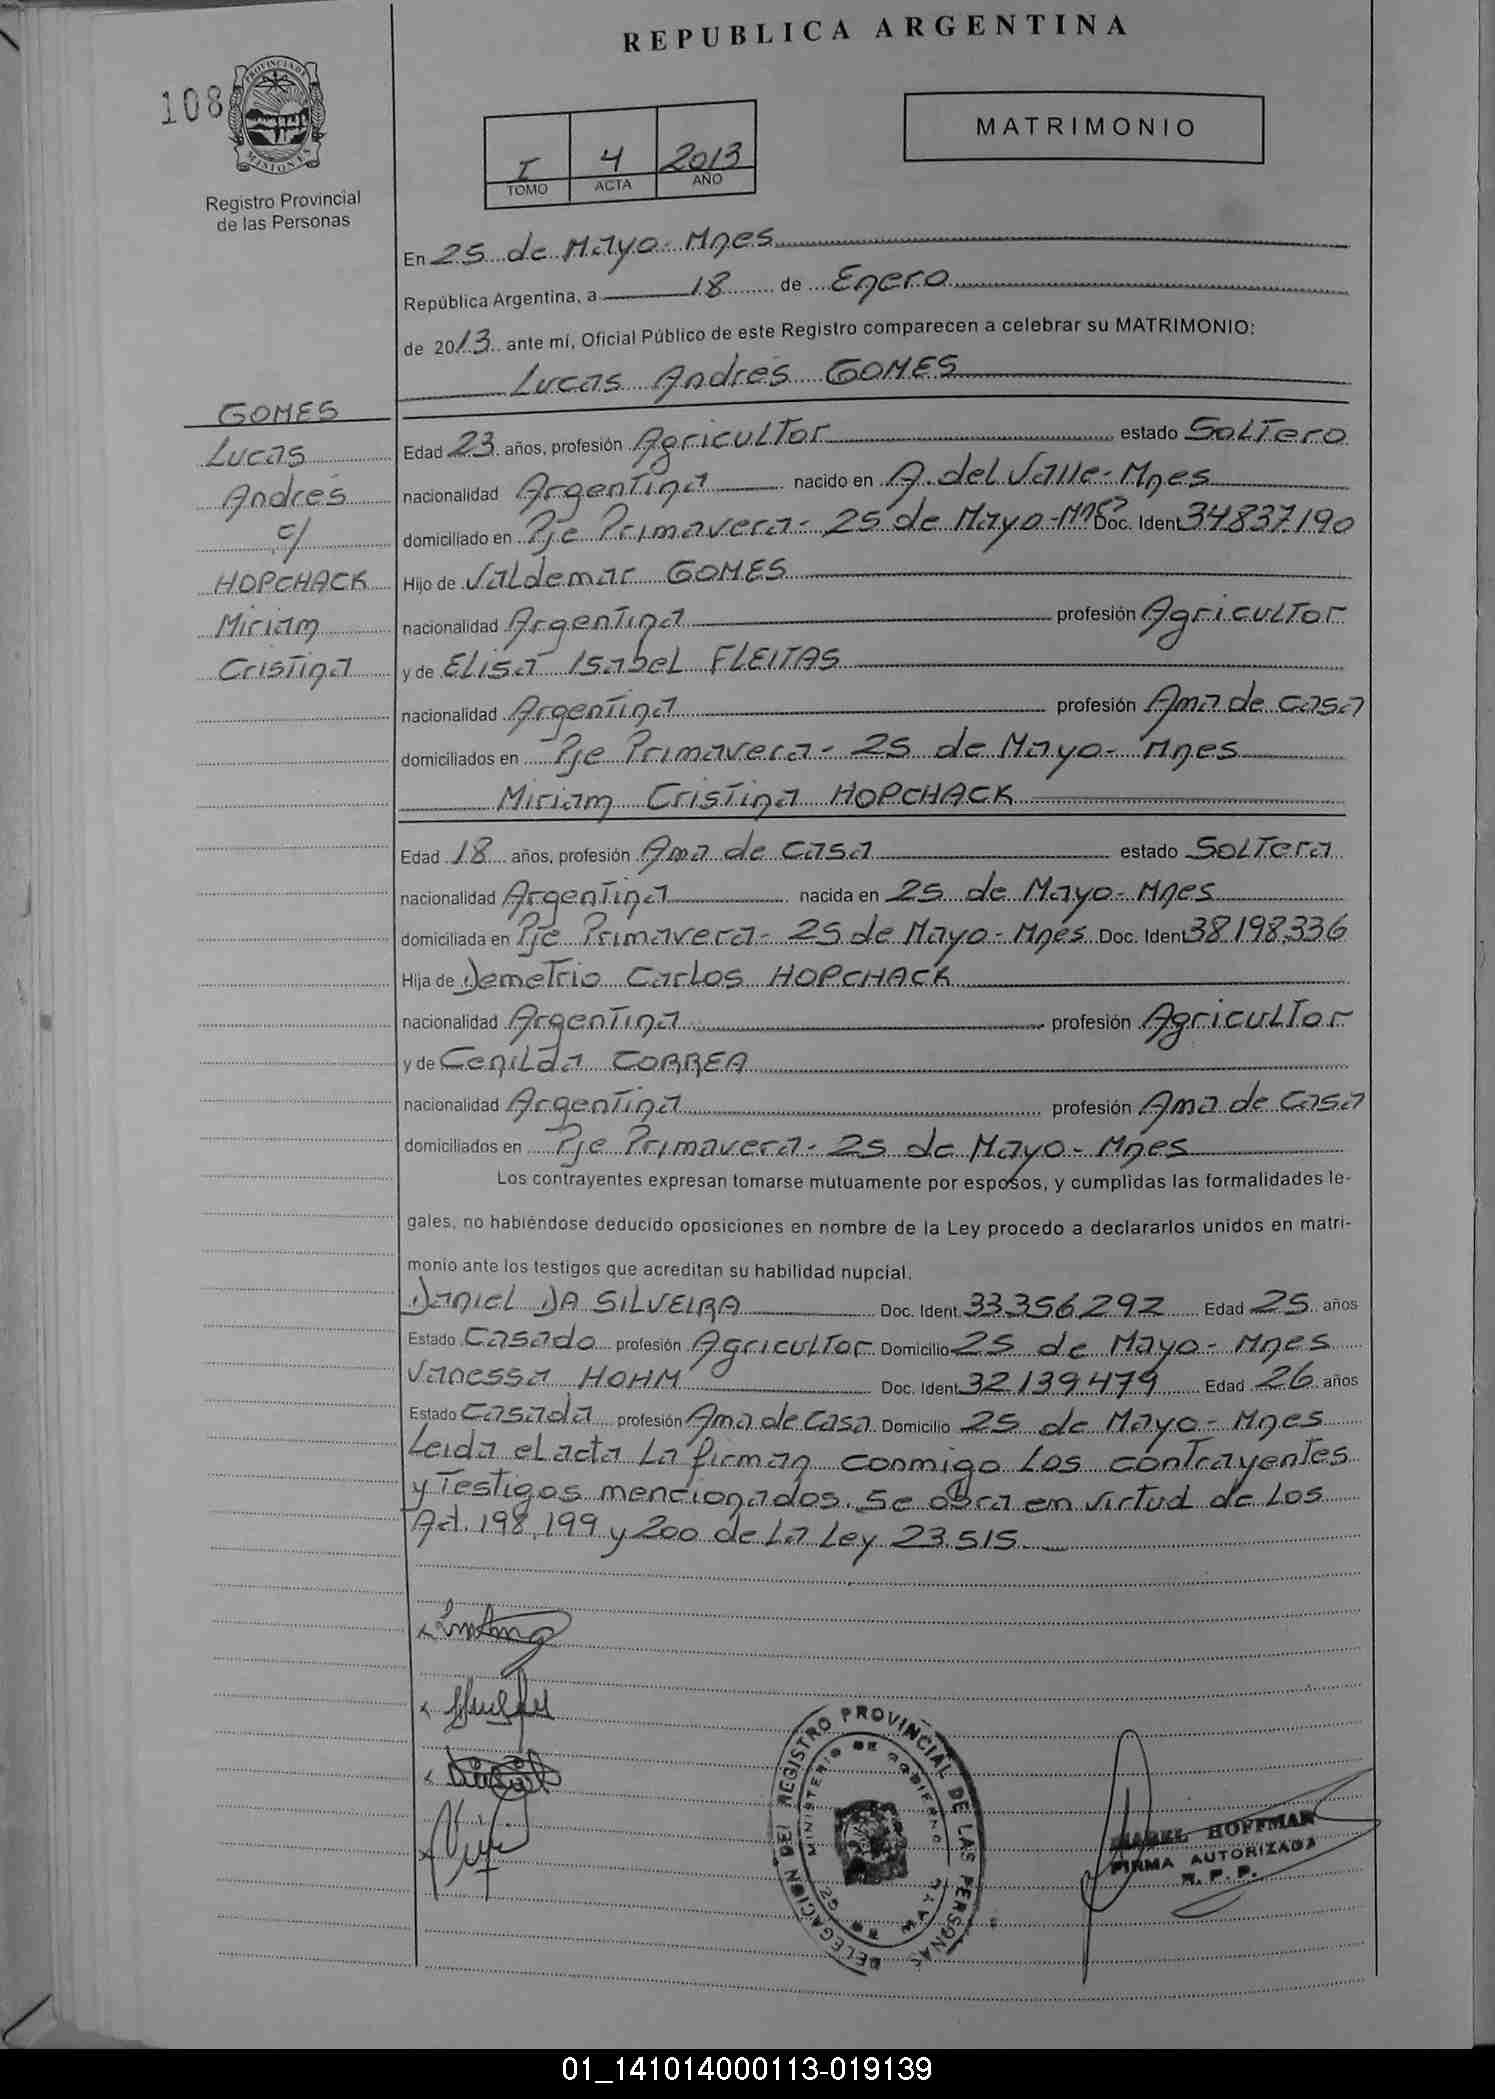 REPUBLICA ARGENTINA
108
PROVINCIA DE
MISIONES
Registro Provincial
de las Personas
I 4 2013
TOMO ACTA AÑO
MATRIMONIO
En 25 de Mayo- Mnes
República Argentina, a 18 de Enero
de 2013 ante mí, Oficial Público de este Registro comparecen a celebrar su MATRIMONIO:
Lucas Andrés GOMES
GOMES
Lucas
Andrés
c/
HOPCHACK
Miriam
Cristina
Edad 23 años, profesión Agricultor estado Soltero
nacionalidad Argentina nacido en A. del Valle- Mnes
domiciliado en Pje Primavera- 25 de Mayo-Mnes Doc. Ident 34837190
Hijo de Valdemar GOMES
nacionalidad Argentina profesión Agricultor
y de Elisa Isabel FLEITAS
nacionalidad Argentina profesión Ama de Casa
domiciliados en Pje Primavera- 25 de Mayo- Mnes
Miriam Cristina HOPCHACK
Edad 18 años, profesión Ama de Casa estado Soltera
nacionalidad Argentina nacida en 25 de Mayo- Mnes
domiciliada en Pje Primavera- 25 de Mayo- Mnes Doc. Ident 38.198.336
Hija de Demetrio Carlos HOPCHACK
nacionalidad Argentina profesión Agricultor
y de Cenilda CORREA
nacionalidad Argentina profesión Ama de Casa
domiciliados en Pje Primavera- 25 de Mayo- Mnes
Los contrayentes expresan tomarse mutuamente por esposos, y cumplidas las formalidades le-
gales, no habiéndose deducido oposiciones en nombre de la Ley procedo a declararlos unidos en matri-
monio ante los testigos que acreditan su habilidad nupcial.
Daniel DA SILVEIRA Doc. Ident. 33.356.292 Edad 25 años
Estado Casado profesión Agricultor Domicilio 25 de Mayo- Mnes
Vanessa HOHM Doc. Ident. 32139479 Edad 26 años
Estado Casada profesión Ama de Casa Domicilio 25 de Mayo- Mnes
Leida el acta la firman conmigo los contrayentes
y Testigos mencionados. Se obra em virtud de los
Art. 198, 199 y 200 de la Ley 23.515.
DELEGACION DEL REGISTRO PROVINCIAL DE LAS PERSONAS
MINISTERIO DE GOBIERNO
25 MAYO
MABEL HOFFMAN
FIRMA AUTORIZADA
R. P. P.
01_141014000113-019139